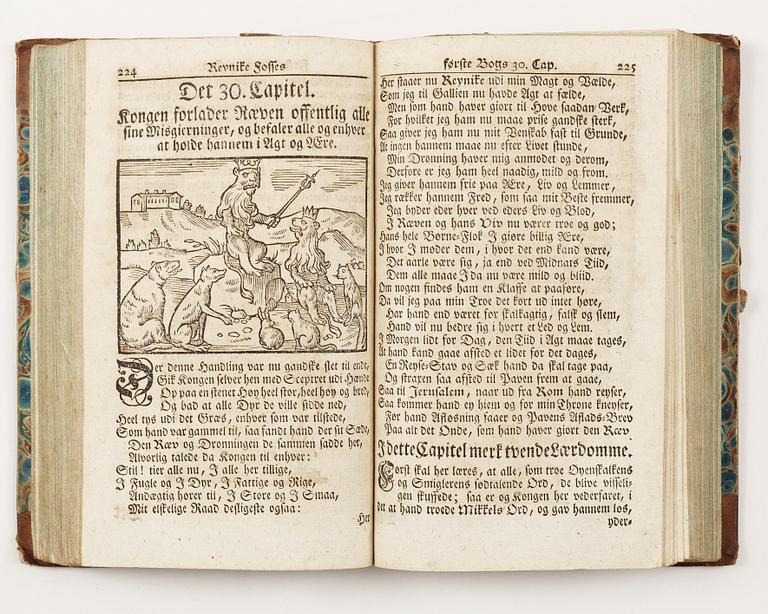 224 Reynike Fosses
Det 30. Capitel.
Kongen forlader Ræven offentlig alle
sine Misgierninger, og befaler alle og enhver
at holde hannem i Agt og Ære.
Der denne Handling var nu gandske slet til ende,
Gik Kongen selver hen med Sceptret udi Hænde
Op paa en stenet Høy heel stor, heel høy og bred,
Og bad at alle Dyr de ville sidde ned,
Heel tys udi det Græs, enhver som var tilstede,
Som hand var gammel til, saa fandt hand der sit Sæde,
Den Ræv og Dronningen de sammen sadde her,
Alvorlig talede da Kongen til enhver:
Stil! tier alle nu, I alle her tillige,
I Fugle og I Dyr, I Fattige og Rige,
Andægtig hører til, I Store og I Smaa,
Mit elskelige Raad desligeste ogsaa:
Her
første Bogs 30. Cap. 225
Her staaer nu Reynike udi min Magt og Vælde,
Som jeg til Gallien nu havde Agt at fælde,
Men som hand haver giort til Hove saadan Verk,
For hvilket jeg ham nu maae prise gandske sterk,
Saa giver jeg ham nu mit Venskab fast til Grunde,
At ingen hannem maae nu efter Livet stunde,
Min Dronning haver mig anmodet og derom,
Derfore er jeg ham heel naadig, mild og from.
Jeg giver hannem frie paa Ære, Liv og Lemmer,
Jeg rækker hannem Fred, som saa mit Beste fremmer,
Jeg byder eder hver ved eders Liv og Blod,
I Ræven og hans Viv nu værer troe og god;
Hans hele Børne-Flok I giøre billig Ære,
Ihvor I møder dem, i hvor det end kand være,
Det aarle være sig, ja end ved Midnats Tiid,
Dem alle maae I da nu være mild og bliid.
Om nogen findes ham en Klaffe at paaføre,
Da vil jeg paa min Troe det kort ud intet høre,
Har hand end været før skalkagtig, falsk og slem,
Hand vil nu bedre sig i hvert et Led og Lem.
I Morgen lidt for Dag, den Tiid i Agt maae tages,
At hand kand gaae afsted et lidet for det dages,
En Reyse-Stav og Sæk hand da skal tage paa,
Og straxen saa afsted til Paven frem at gaae,
Saa til Jerusalem, naar ud fra Rom hand reyser,
Saa kommer hand ey hiem og for min Throne kneyser,
Før hand Afløsning faaer og Pavens Aflads-Brev
Paa alt det Onde, som hand haver giort den Ræv
I dette Capitel merk tvende Lærdomme.
Først skal her læres, at alle, som troe Øyenskalkens
og Smiglerens sødtalende Ord, de blive visseli-
gen skuffede; saa er og Kongen her vederfaret, i
det at hand troede Mikkels Ord, og gav hannem los,
yder-